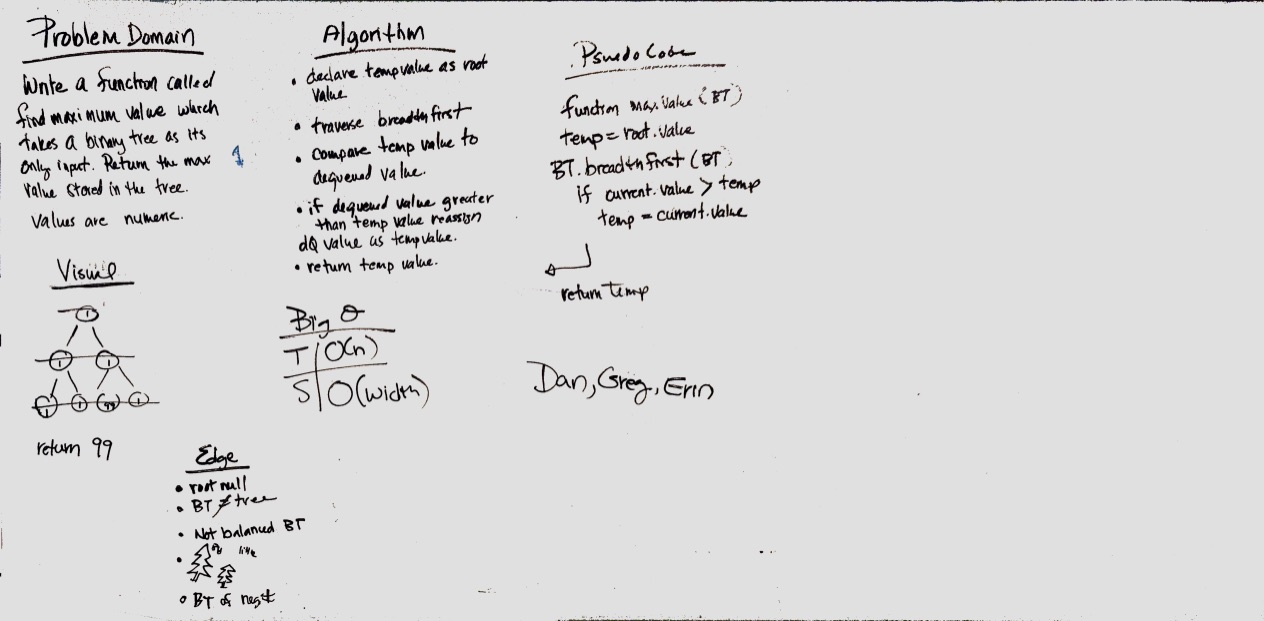 Problem Domain
Write a function called
find maximum value which
takes a binary tree as its
only input. Return the max
value stored in the tree.
Values are numeric.
1
Visual
1
1 1
1 1 99 1
return 99
Algorithm
• declare temp value as root
value
• traverse breadth first
• compare temp value to
dequeued value.
• if dequeued value greater
than temp value reassign
dQ value as temp value.
• return temp value.
Big O
T | O(n)
S | O(width)
Edge
• root null
• BT ≠ tree
• Not balanced BT
•
• BT of neg #
Psuedo Code
function max.value (BT)
temp = root.value
BT.breadthfirst (BT)
if current.value > temp
temp = current.value
return temp
Dan, Greg, Erin